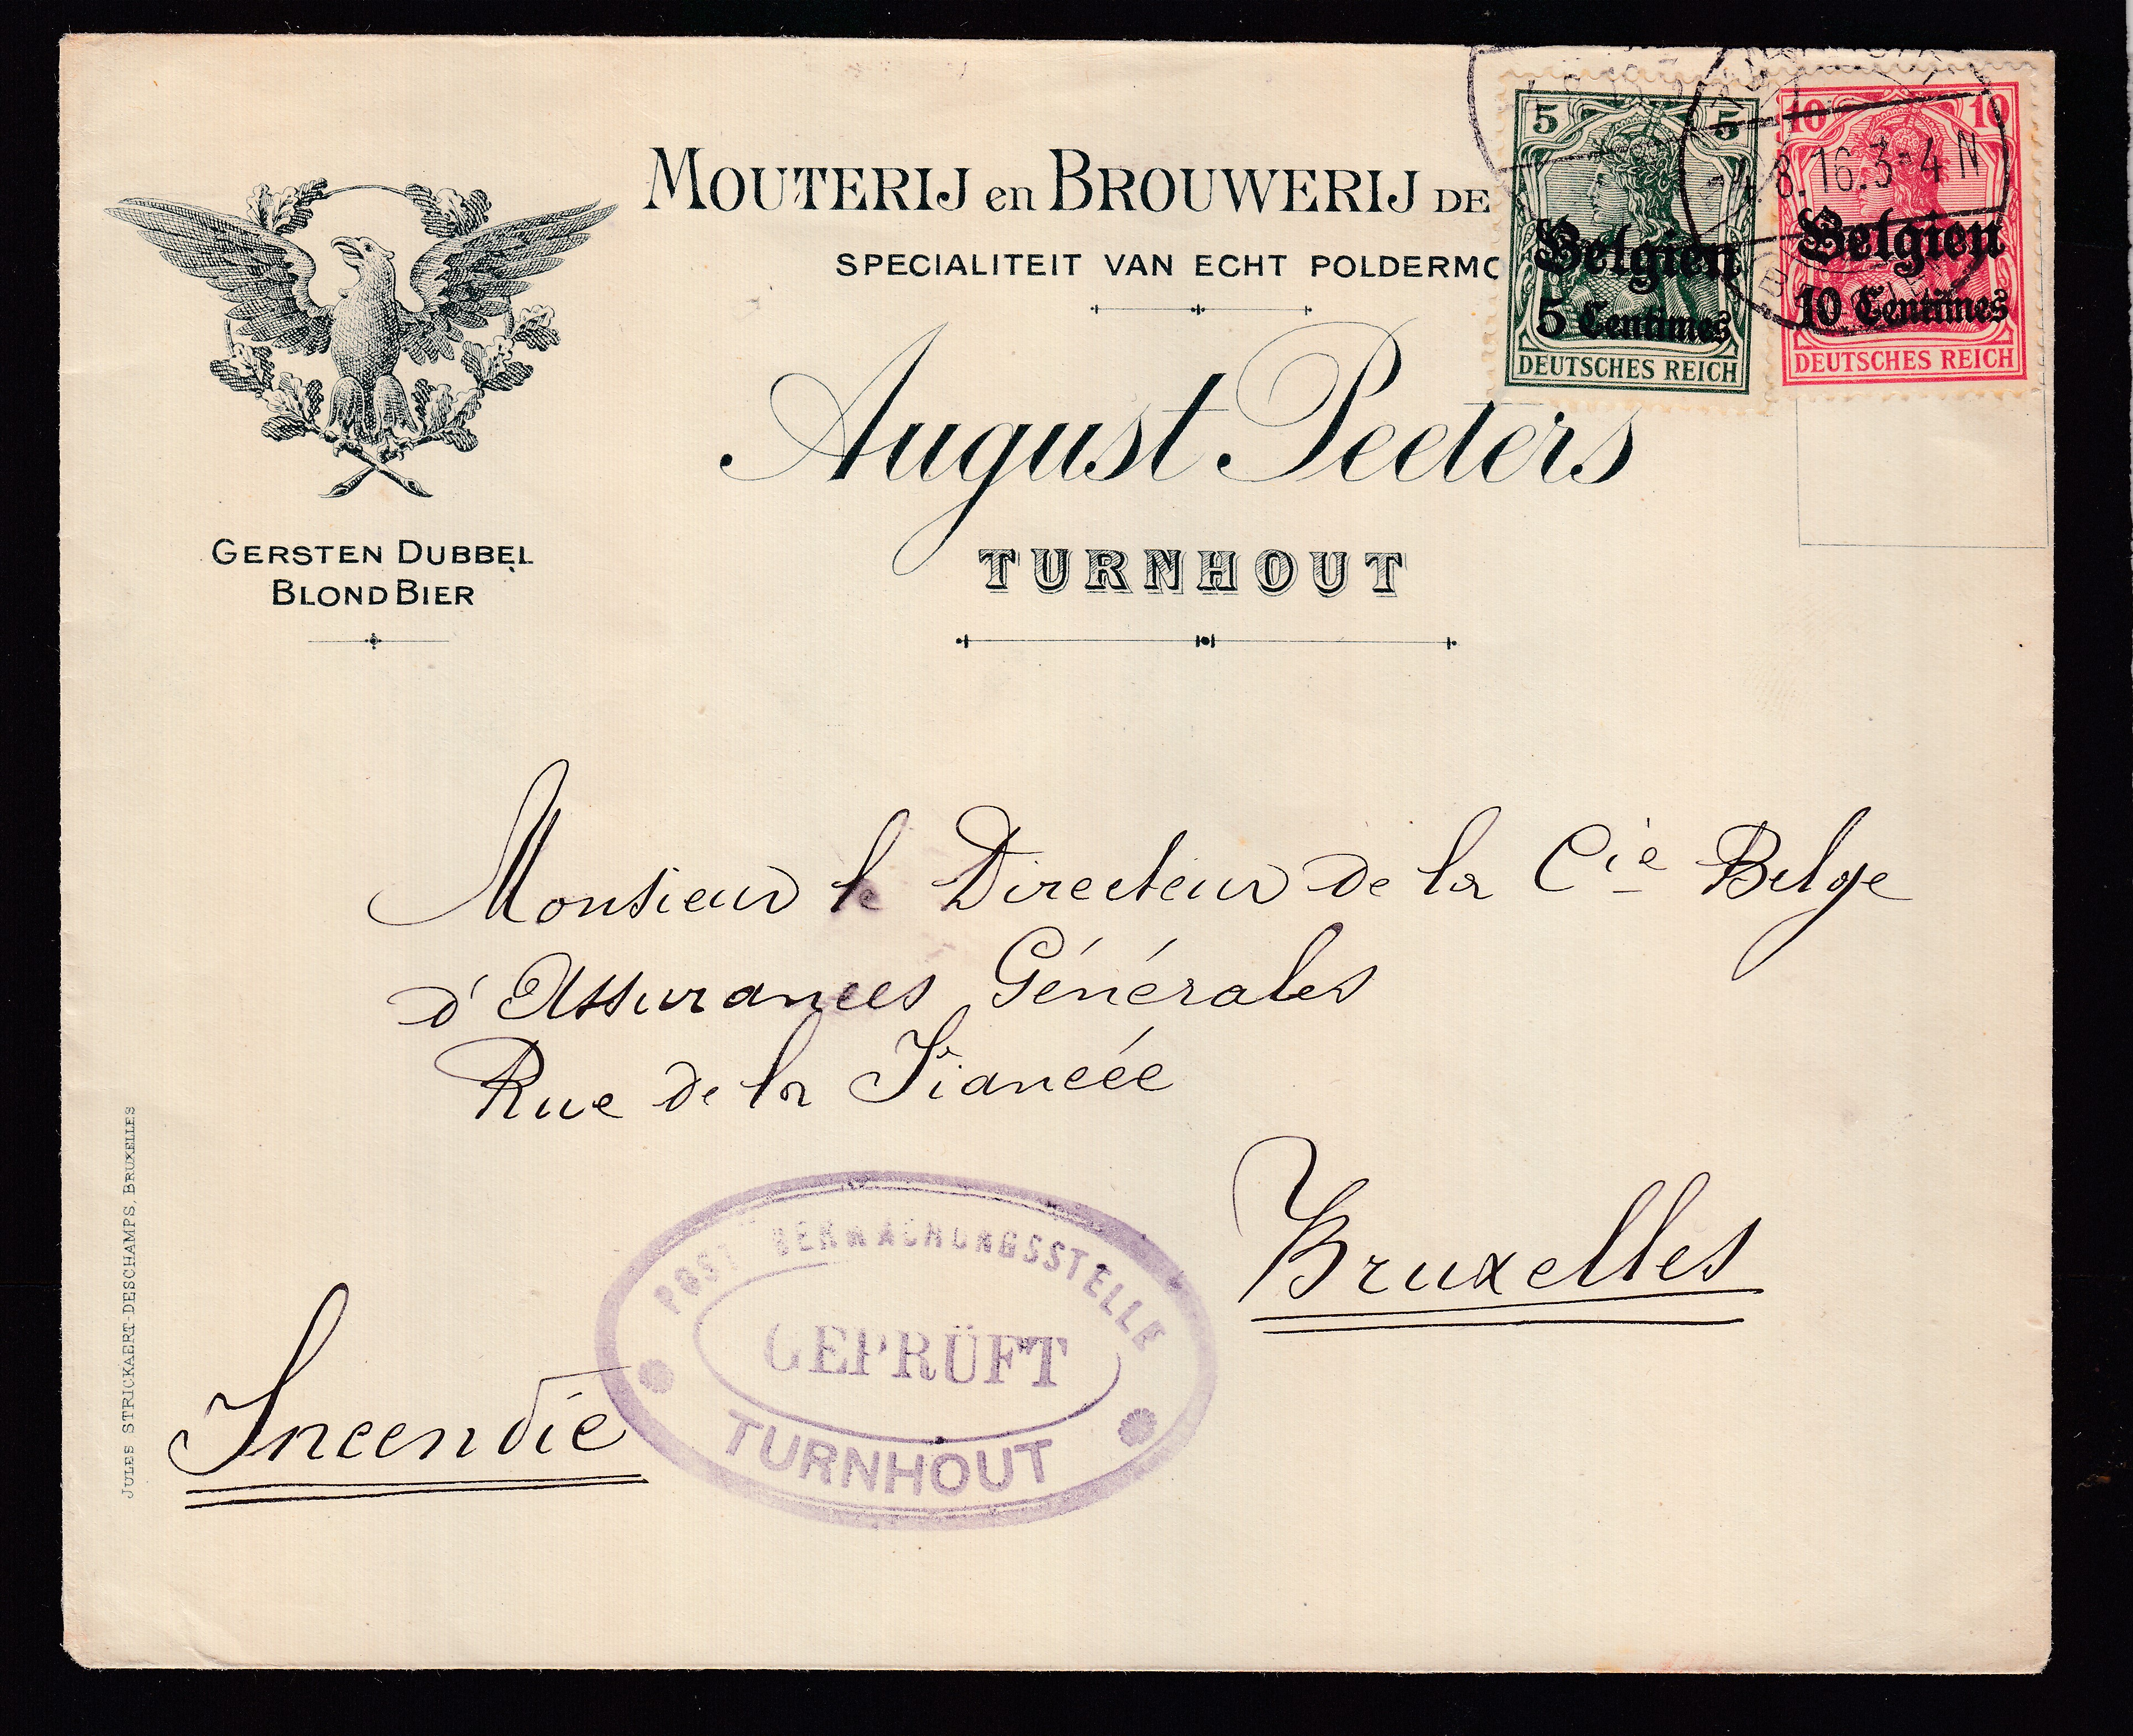 MOUTERIJ en BROUWERIJ DE
SPECIALITEIT VAN ECHT
August Peeters
TURNHOUT
GERSTEN DUBBEL
BLOND BIER
5 5
Belgien
5 Centimes
DEUTSCHES REICH
10 10
Belgien
10 Centimes
DEUTSCHES REICH
8.16.3-4 N
Monsieur le Directeur de la Cie Belge
d'Assurances Générales
Rue de la Fiancée
Bruxelles
Incendie
POSTÜBERWACHUNGSSTELLE
GEPRÜFT
TURNHOUT
JULES STRICKAERT-DESCHAMPS, BRUXELLES